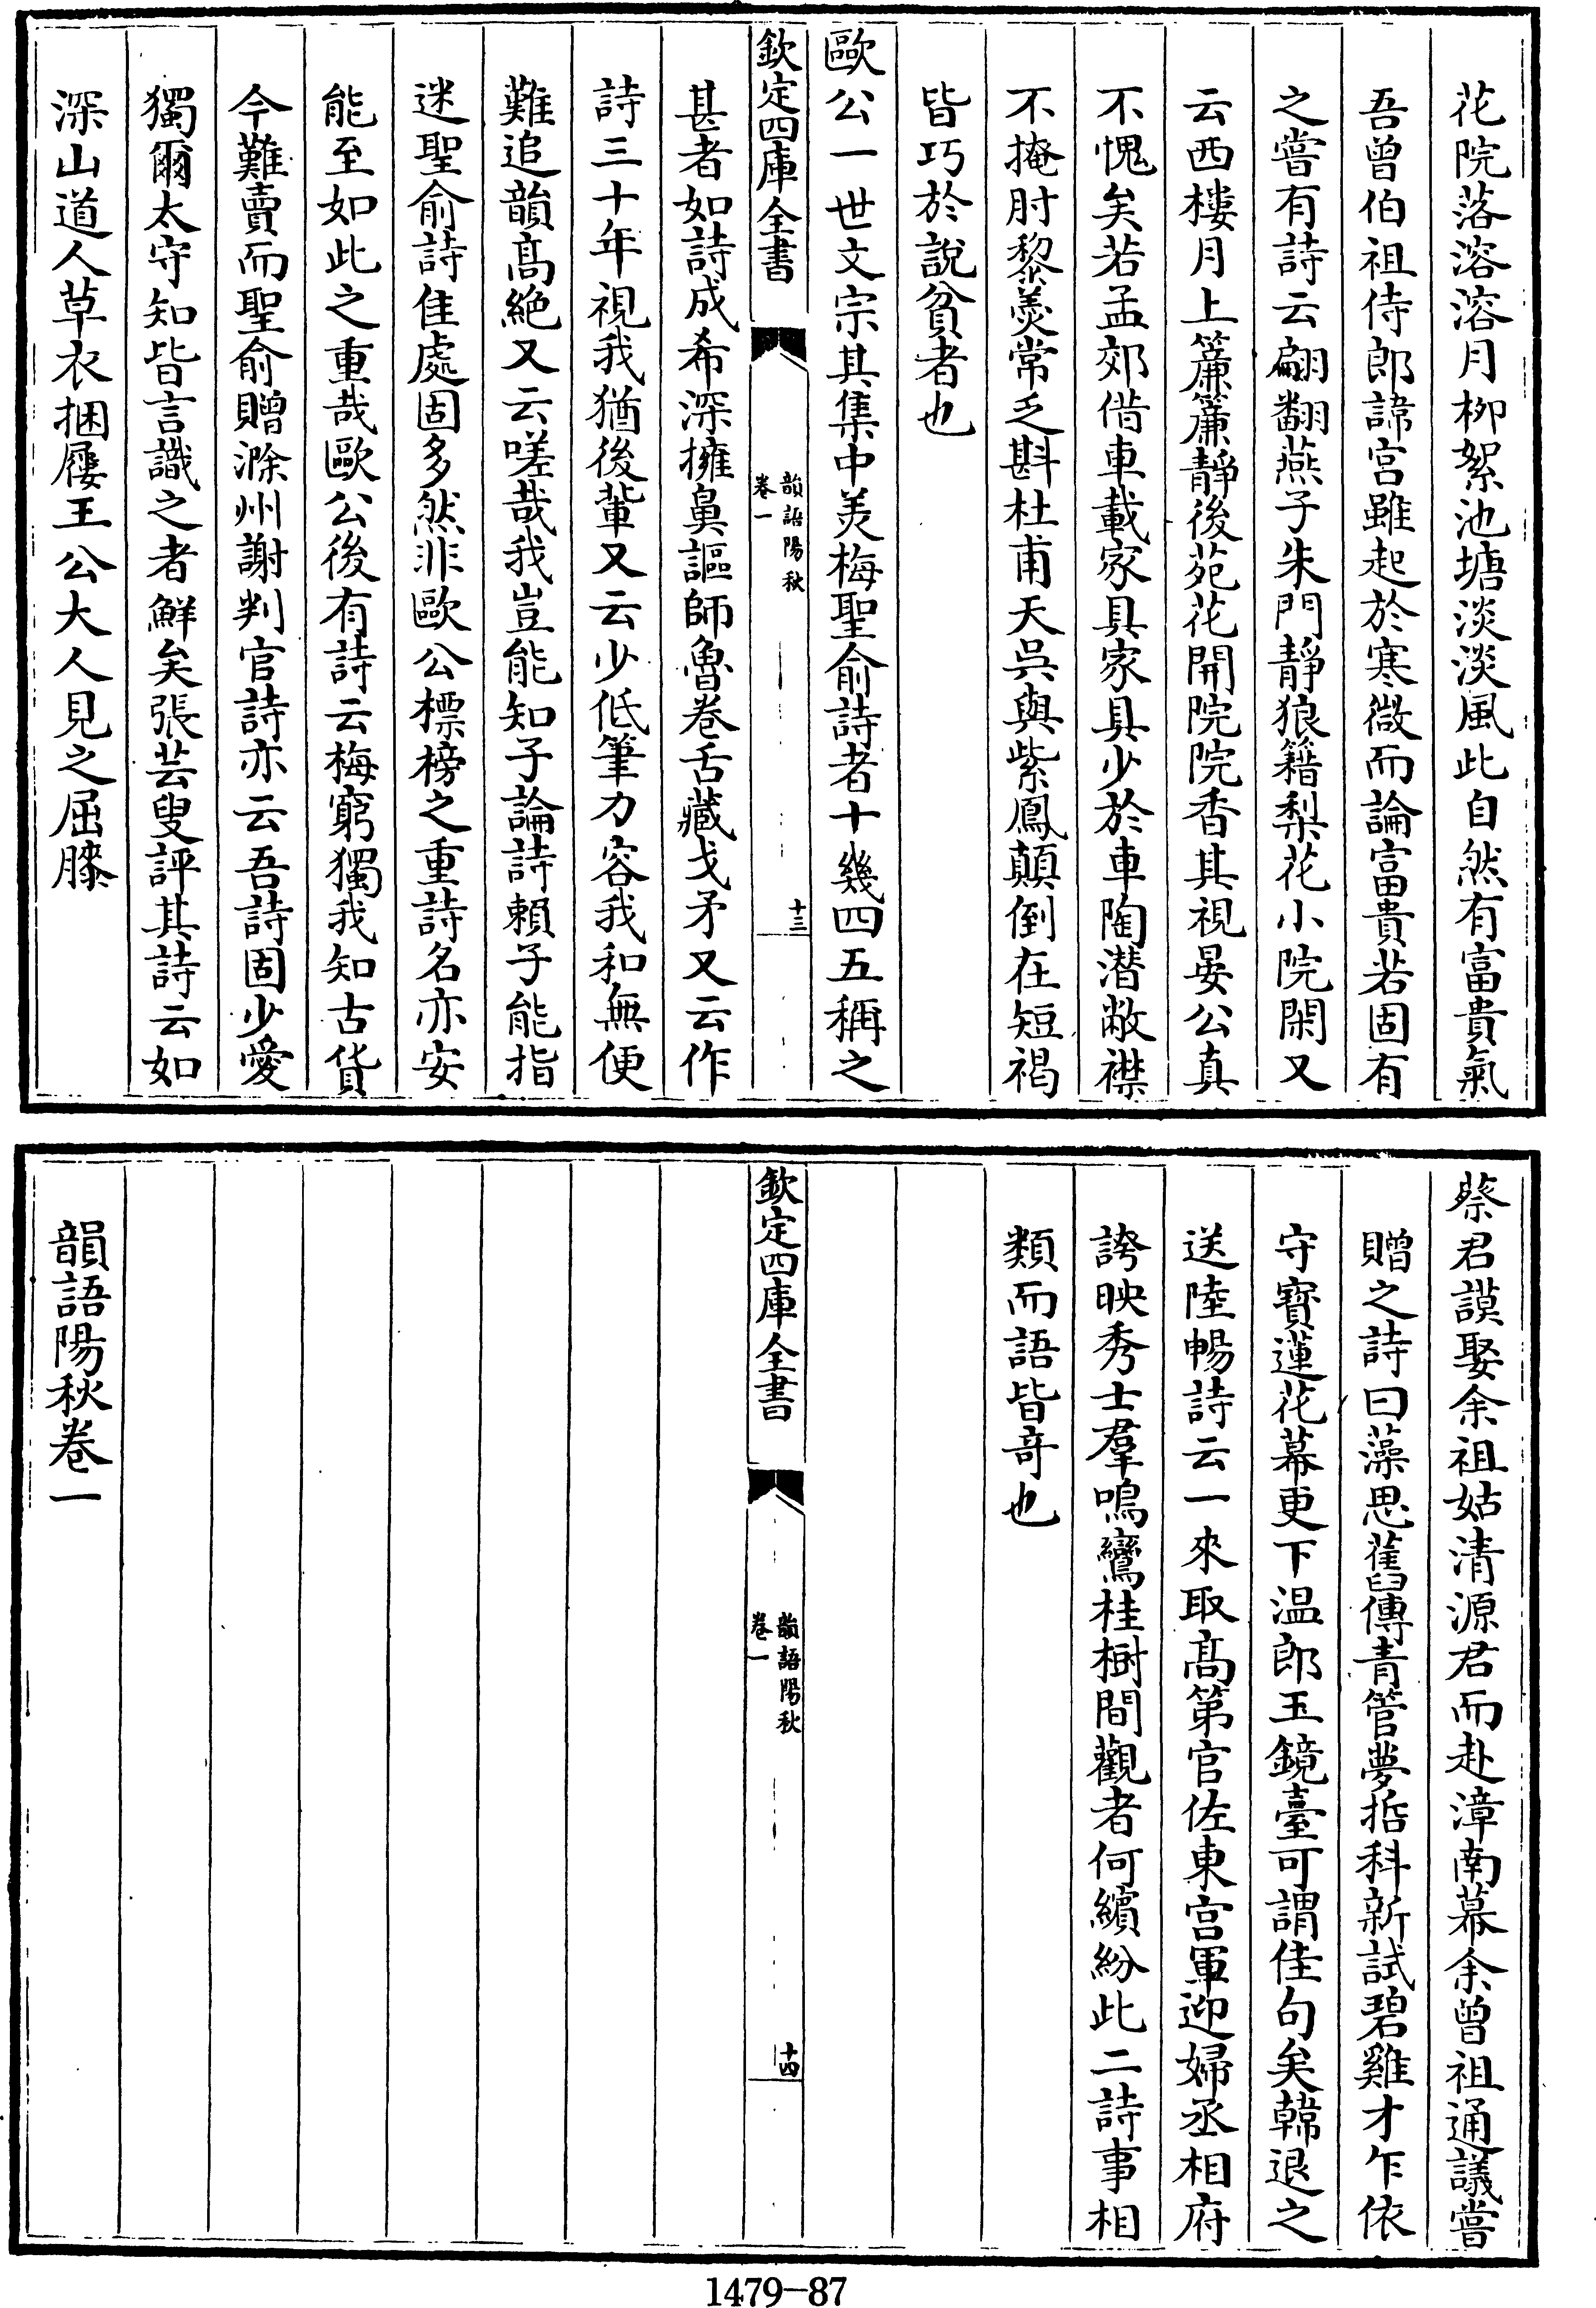 花院落溶溶月柳絮池塘淡淡風此自然有富貴氣
吾曾伯祖侍郎諱宫雖起於寒微而論富貴若固有
之嘗有詩云翩翻燕子朱門靜狼籍梨花小院閑又
云西樓月上簾簾靜後苑花開院院香其視晏公真
不愧矣若孟郊借車載家具家具少於車陶潛敝襟
不掩肘黎羮常乏斟杜甫天吳與紫鳳顛倒在短褐
皆巧於說貧者也
歐公一世文宗其集中美梅聖俞詩者十幾四五稱之
欽定四庫全書
韻語陽秋
卷一
十三
甚者如詩成希深擁鼻謳師魯卷舌藏戈矛又云作
詩三十年視我猶後輩又云少低筆力容我和無使
難追韻高絶又云嗟哉我豈能知子論詩賴子能指
迷聖俞詩佳處固多然非歐公標榜之重詩名亦安
能至如此之重哉歐公後有詩云梅窮獨我知古貨
今難賣而聖俞贈滁州謝判官詩亦云吾詩固少愛
獨爾太守知皆言識之者鮮矣張芸叟評其詩云如
深山道人草衣捆屨王公大人見之屈膝
蔡君謨娶余祖姑清源君而赴漳南幕余曾祖通議嘗
贈之詩曰藻思舊傳青管夢哲科新試碧雞才乍依
守寳蓮花幕更下温郎玉鏡臺可謂佳句矣韓退之
送陸暢詩云一來取高第官佐東宫軍迎婦丞相府
誇映秀士羣鳴鸞桂樹間觀者何繽紛此二詩事相
類而語皆竒也
欽定四庫全書
韻語陽秋
卷一
十四
韻語陽秋卷一
1479-87